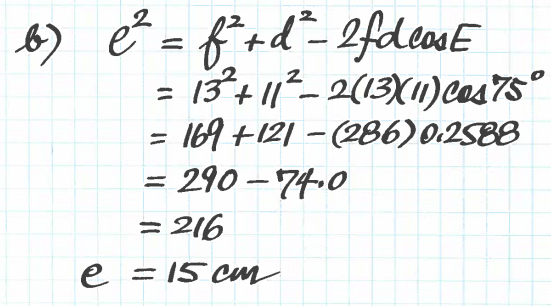 b) e² = f² + d² - 2fd cos E
= 13² + 11² - 2(13)(11) cos 75°
= 169 + 121 - (286) 0.2588
= 290 - 74.0
= 216
e = 15 cm